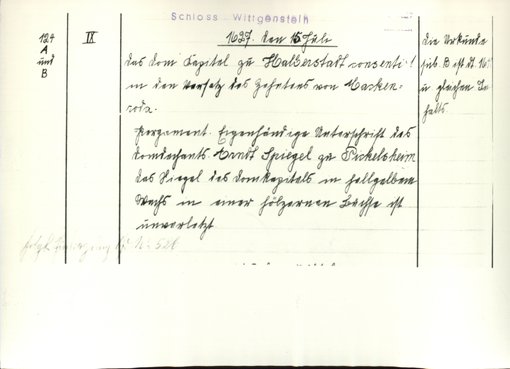 Schloss Wittgenstein
124 A und B
IX
1637. den 15 Juli
Das Dom Kapitel zu Halberstadt consentirt
in den Versatz des Zehnten von Macken-
roda.
Pergament. Eigenhändige Unterschrift des
Domdechants Arndt Spiegel zu Pickelsheim
das Siegel des Domkapitels in hellgelbem
Wachs in einer hölzernen Büchse ist
unverletzt
Die Urkunde
sub B ist dt.
u gleichen In-
halts